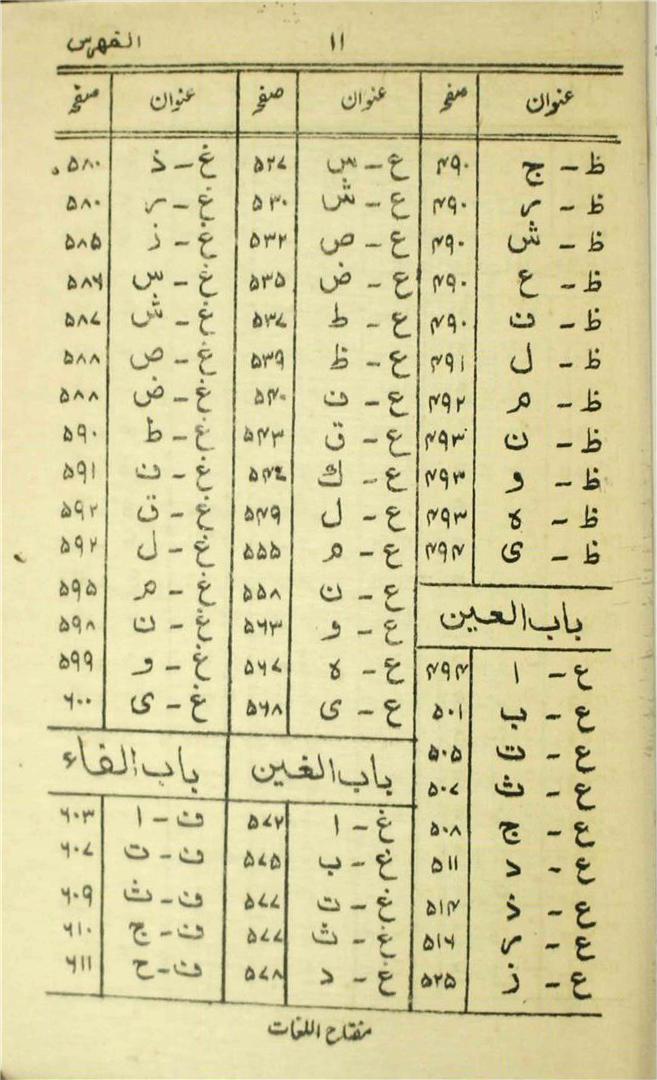 الفهرس ۱۱
عنوان صفحہ عنوان صفحہ عنوان صفحہ
ظ - ج ۴۹۰
ظ - ر ۴۹۰
ظ - ش ۴۹۰
ظ - ع ۴۹۰
ظ - ف ۴۹۰
ظ - ل ۴۹۱
ظ - م ۴۹۲
ظ - ن ۴۹۳
ظ - و ۴۹۳
ظ - ہ ۴۹۳
ظ - ی ۴۹۴
باب العین
ع - ا ۴۹۴
ع - ب ۵۰۱
ع - ت ۵۰۵
ع - ث ۵۰۷
ع - ج ۵۰۸
ع - د ۵۱۱
ع - ذ ۵۱۴
ع - ر ۵۱۶
ع - ز ۵۲۵
ع - س ۵۲۷
ع - ش ۵۳۰
ع - ص ۵۳۲
ع - ض ۵۳۵
ع - ط ۵۳۷
ع - ظ ۵۳۹
ع - ف ۵۴۰
ع - ق ۵۴۳
ع - ك ۵۴۷
ع - ل ۵۴۹
ع - م ۵۵۵
ع - ن ۵۵۸
ع - و ۵۶۳
ع - ہ ۵۶۷
ع - ی ۵۶۸
باب الغین
غ - ا ۵۷۲
غ - ب ۵۷۵
غ - ت ۵۷۷
غ - ث ۵۷۷
غ - د ۵۷۸
غ - ذ ۵۸۰
غ - ر ۵۸۰
غ - ز ۵۸۵
غ - س ۵۸۶
غ - ش ۵۸۷
غ - ص ۵۸۸
غ - ض ۵۸۸
غ - ط ۵۹۰
غ - ف ۵۹۱
غ - ق ۵۹۲
غ - ل ۵۹۲
غ - م ۵۹۵
غ - ن ۵۹۸
غ - و ۵۹۹
غ - ی ۶۰۰
باب الفاء
ف - ا ۶۰۳
ف - ت ۶۰۷
ف - ث ۶۰۹
ف - ج ۶۱۰
ف - ح ۶۱۱
مفتاح اللغات